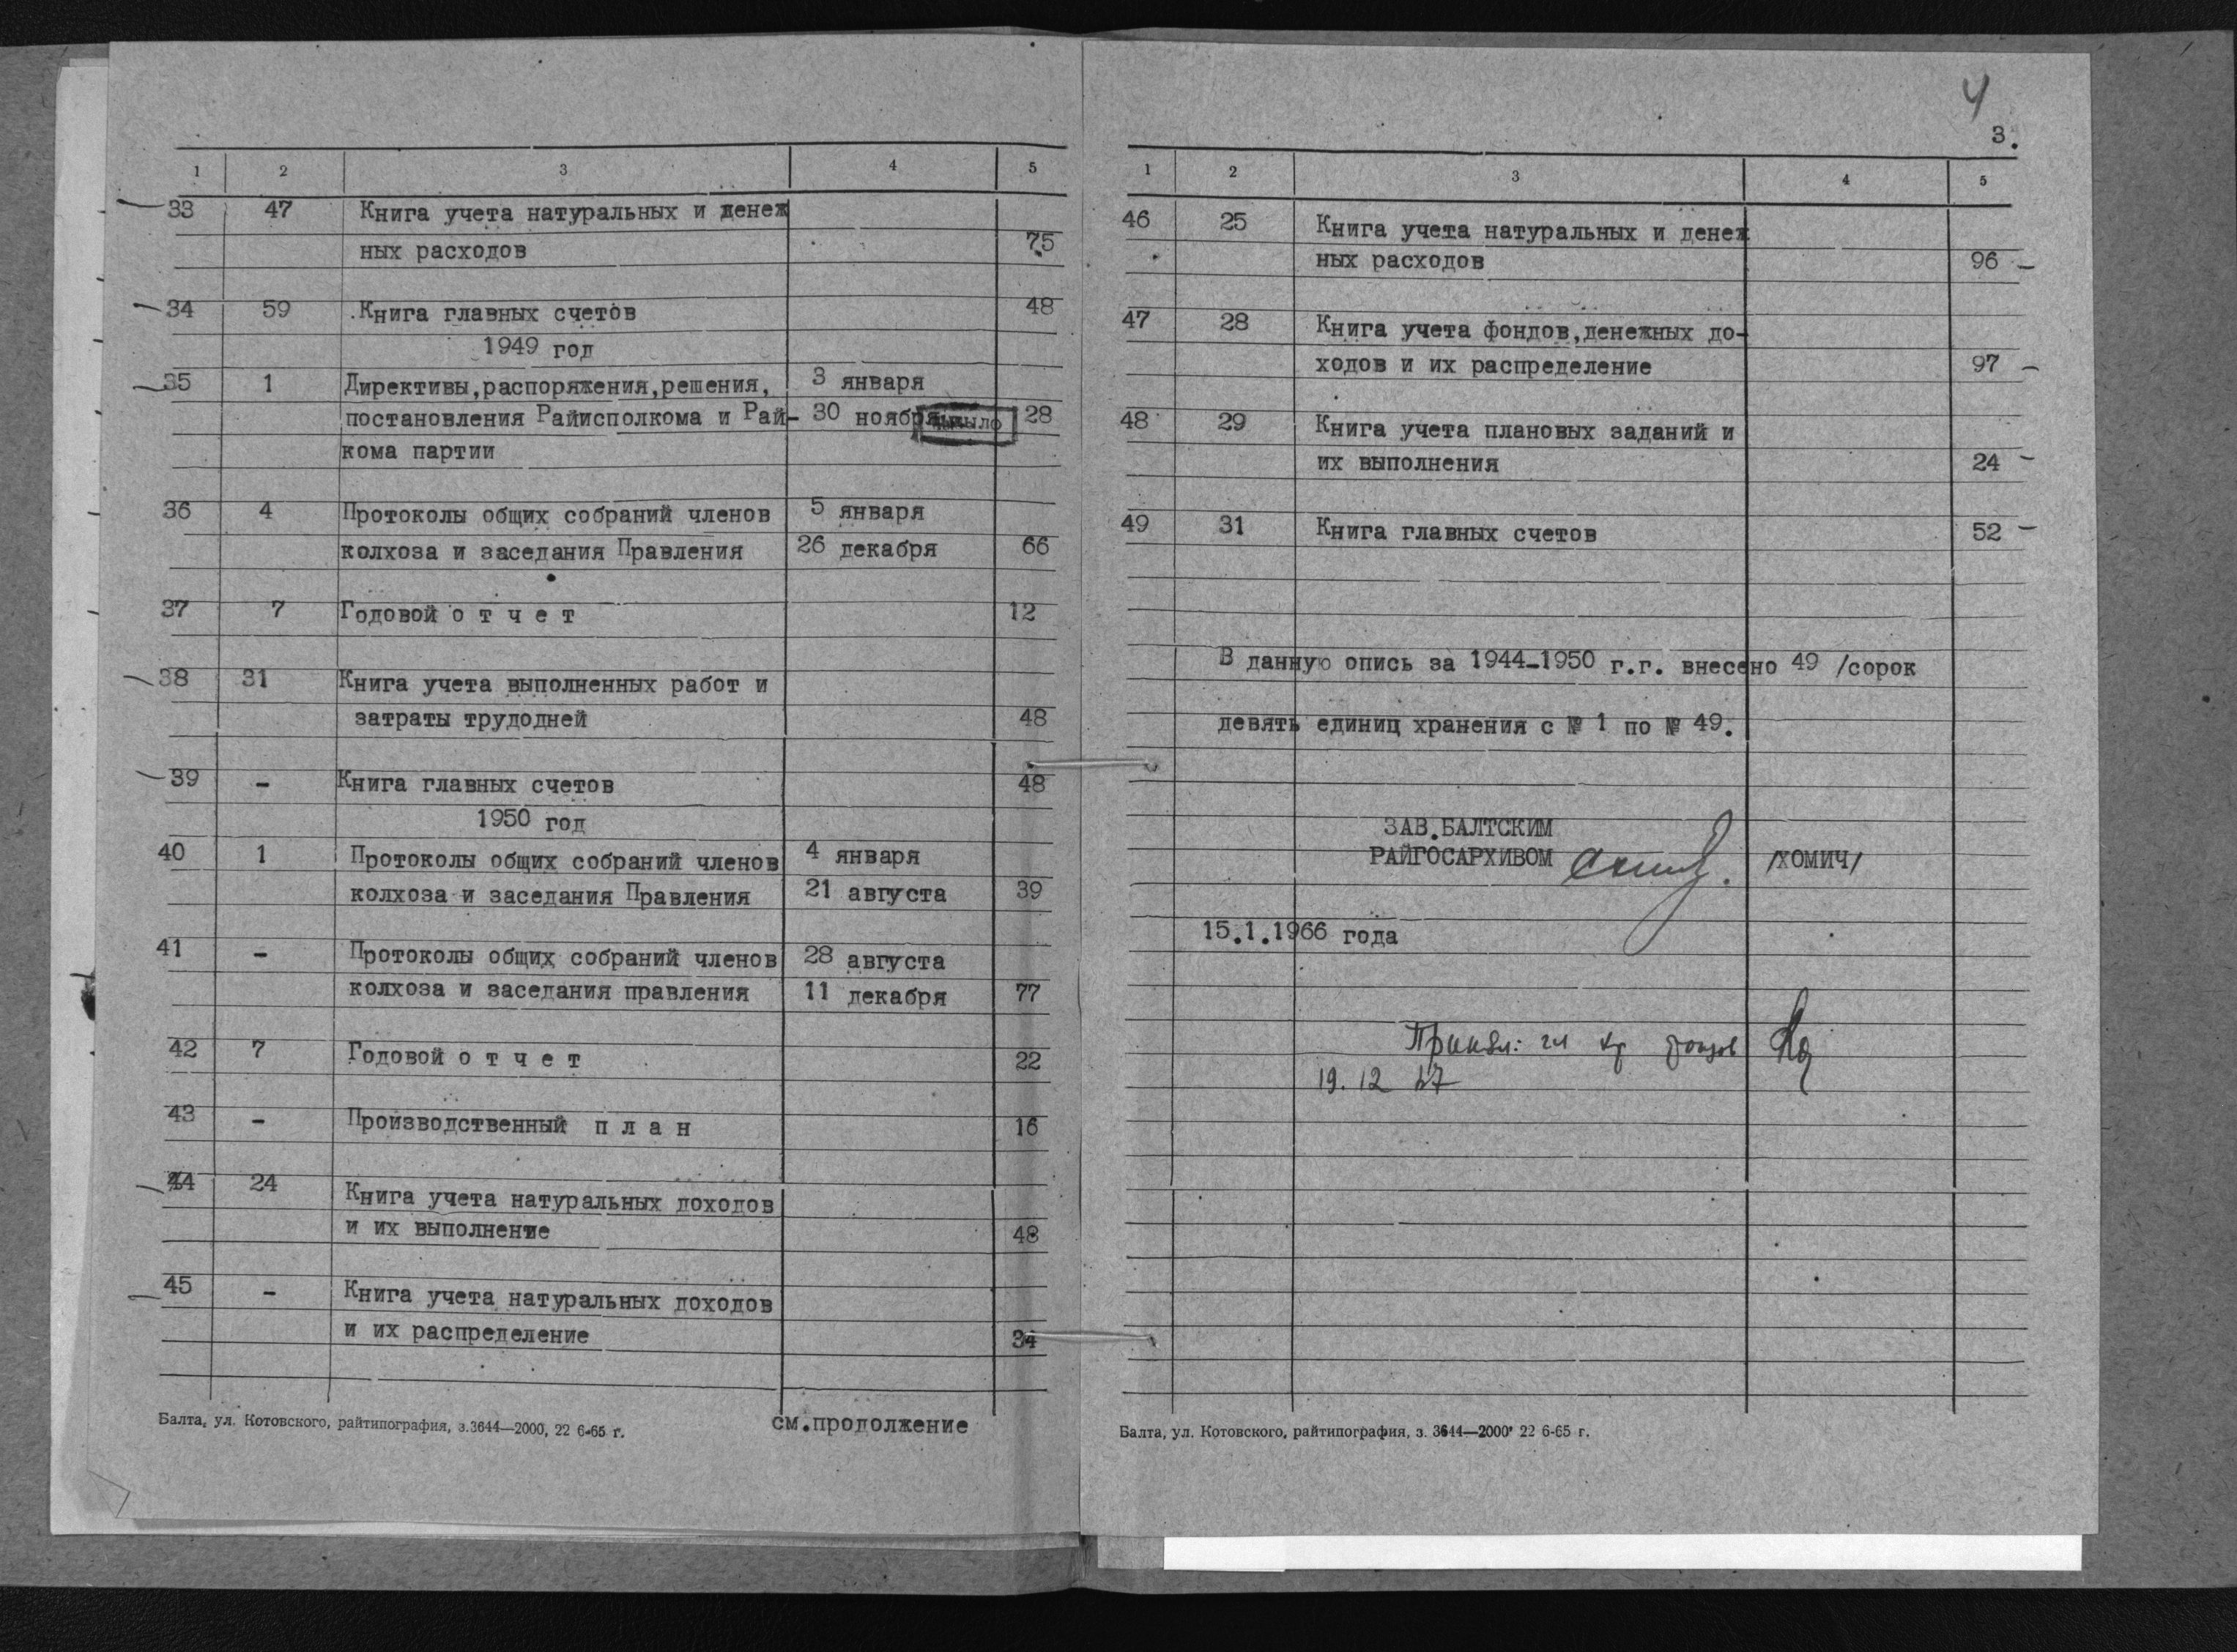 1 2 3 4 5
33 47 Книга учета натуральных и денеж
ных расходов 75
34 59 Книга главных счетов 48
1949 год
35 1 Директивы,распоряжения,решения, 3 января
постановления Райисполкома и Рай- 30 ноября 28
кома партии
36 4 Протоколы общих собраний членов 5 января
колхоза и заседания Правления 26 декабря 66
37 7 Годовой о т ч е т 12
38 31 Книга учета выполненных работ и
затраты трудодней 48
39 - Книга главных счетов 48
1950 год
40 1 Протоколы общих собраний членов 4 января
колхоза и заседания Правления 21 августа 39
41 - Протоколы общих собраний членов 28 августа
колхоза и заседания правления 11 декабря 77
42 7 Годовой о т ч е т 22
43 - Производственный п л а н 16
44 24 Книга учета натуральных доходов
и их выполнение 48
45 - Книга учета натуральных доходов
и их распределение 34
Балта, ул. Котовского, райтипография, з.3644—2000, 22 6-65 г.
см.продолжение
4
3.
1 2 3 4 5
46 25 Книга учета натуральных и денеж
ных расходов 96 -
47 28 Книга учета фондов,денежных до-
ходов и их распределение 97 -
48 29 Книга учета плановых заданий и
их выполнения 24 -
49 31 Книга главных счетов 52 -
В данную опись за 1944-1950 г.г. внесено 49 /сорок
девять единиц хранения с № 1 по № 49.
ЗАВ.БАЛТСКИМ
РАЙГОСАРХИВОМ /ХОМИЧ/
15.1.1966 года
Принял: фондов
19. 12
Балта, ул. Котовского, райтипография, з. 3644—2000 22 6-65 г.